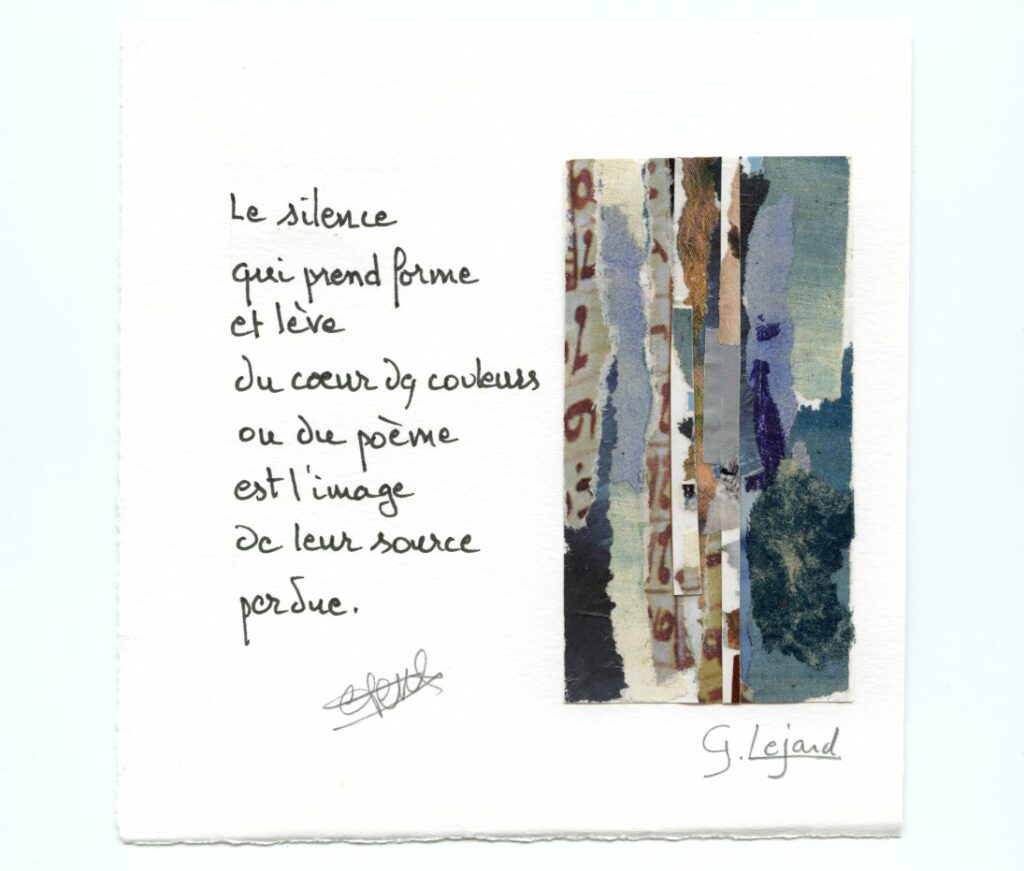 Le silence
qui prend forme
et lève
du cœur des couleurs
ou du poème
est l'image
de leur source
perdue.
G. Lejard